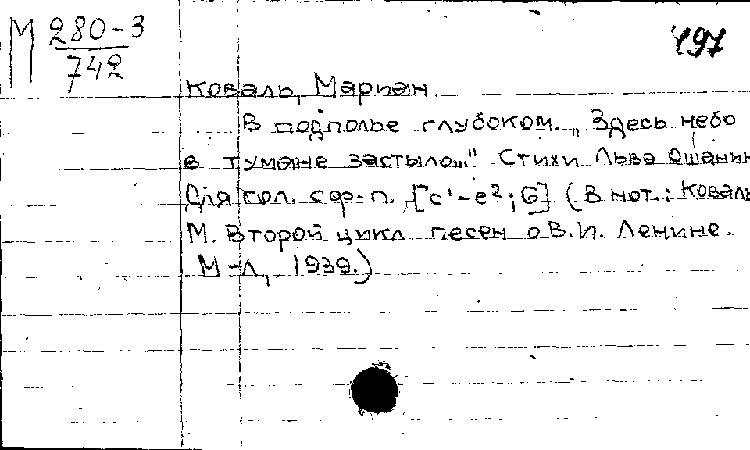 М 280-3
742
197
Коваль, Мариан.
В подполье глубоком. „Здесь небо
в тумане застыло..." Стихи Льва Ошанин
Для гол. с ф-п. [c¹-e²; G] (В нот.: Коваль
М. Второй цикл песен о В.И. Ленине.
М-Л, 1939.)